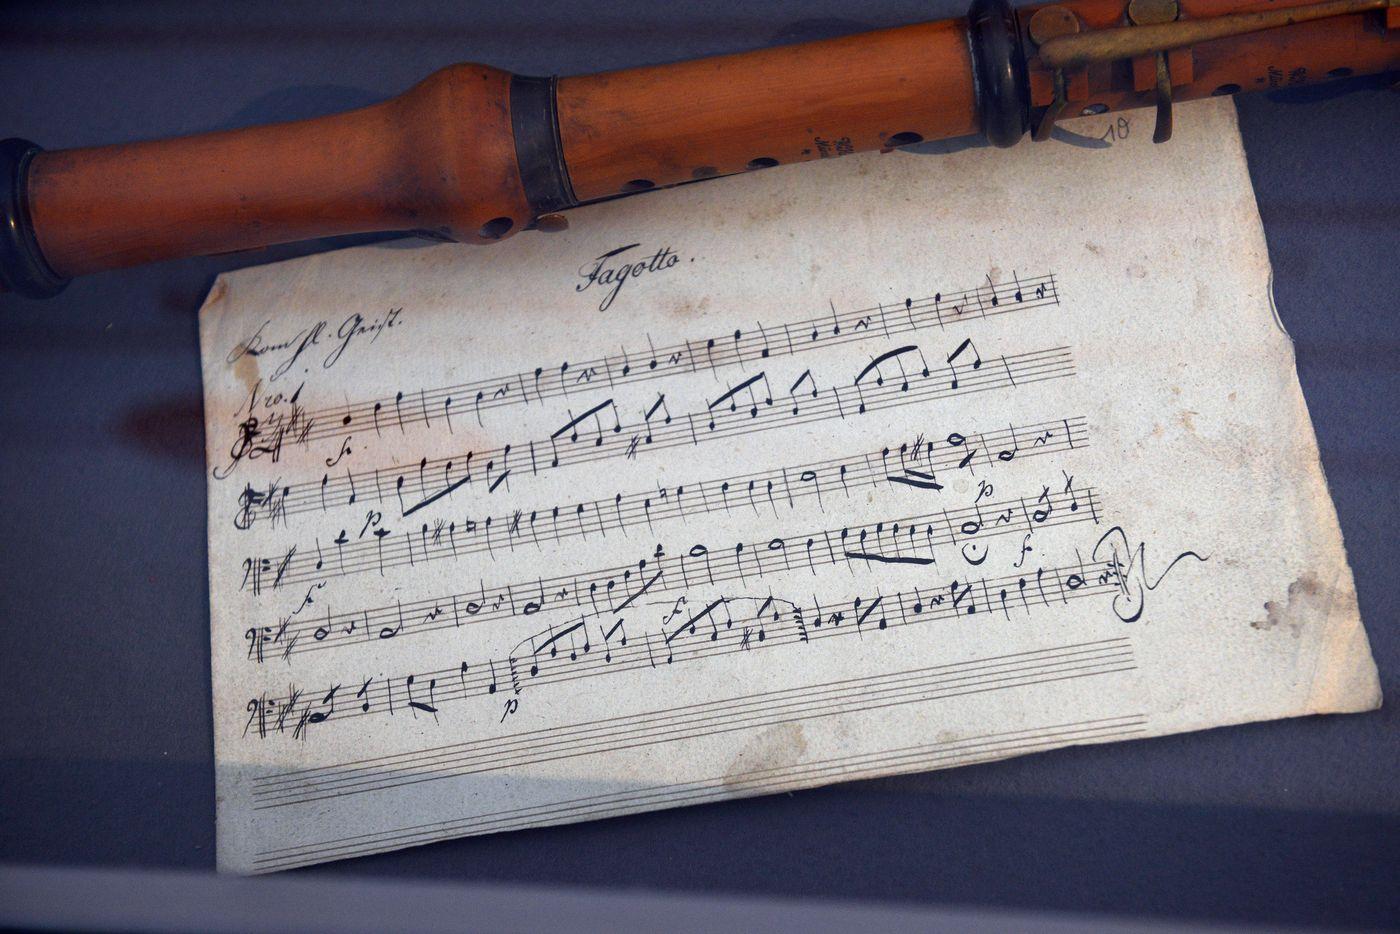 10
Fagotto.
Komh hl. Geist.
Nro. 1
f
p
p
f
f
f
p